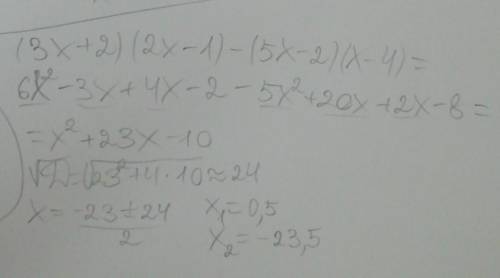 (3x+2)(2x-1)-(5x-2)(x-4)=
6x²-3x+4x-2-5x²+20x+2x-8=
=x²+23x-10
√D=√23²+4·10≈24
x=-23±24/2 x₁=0,5
x₂=-23,5